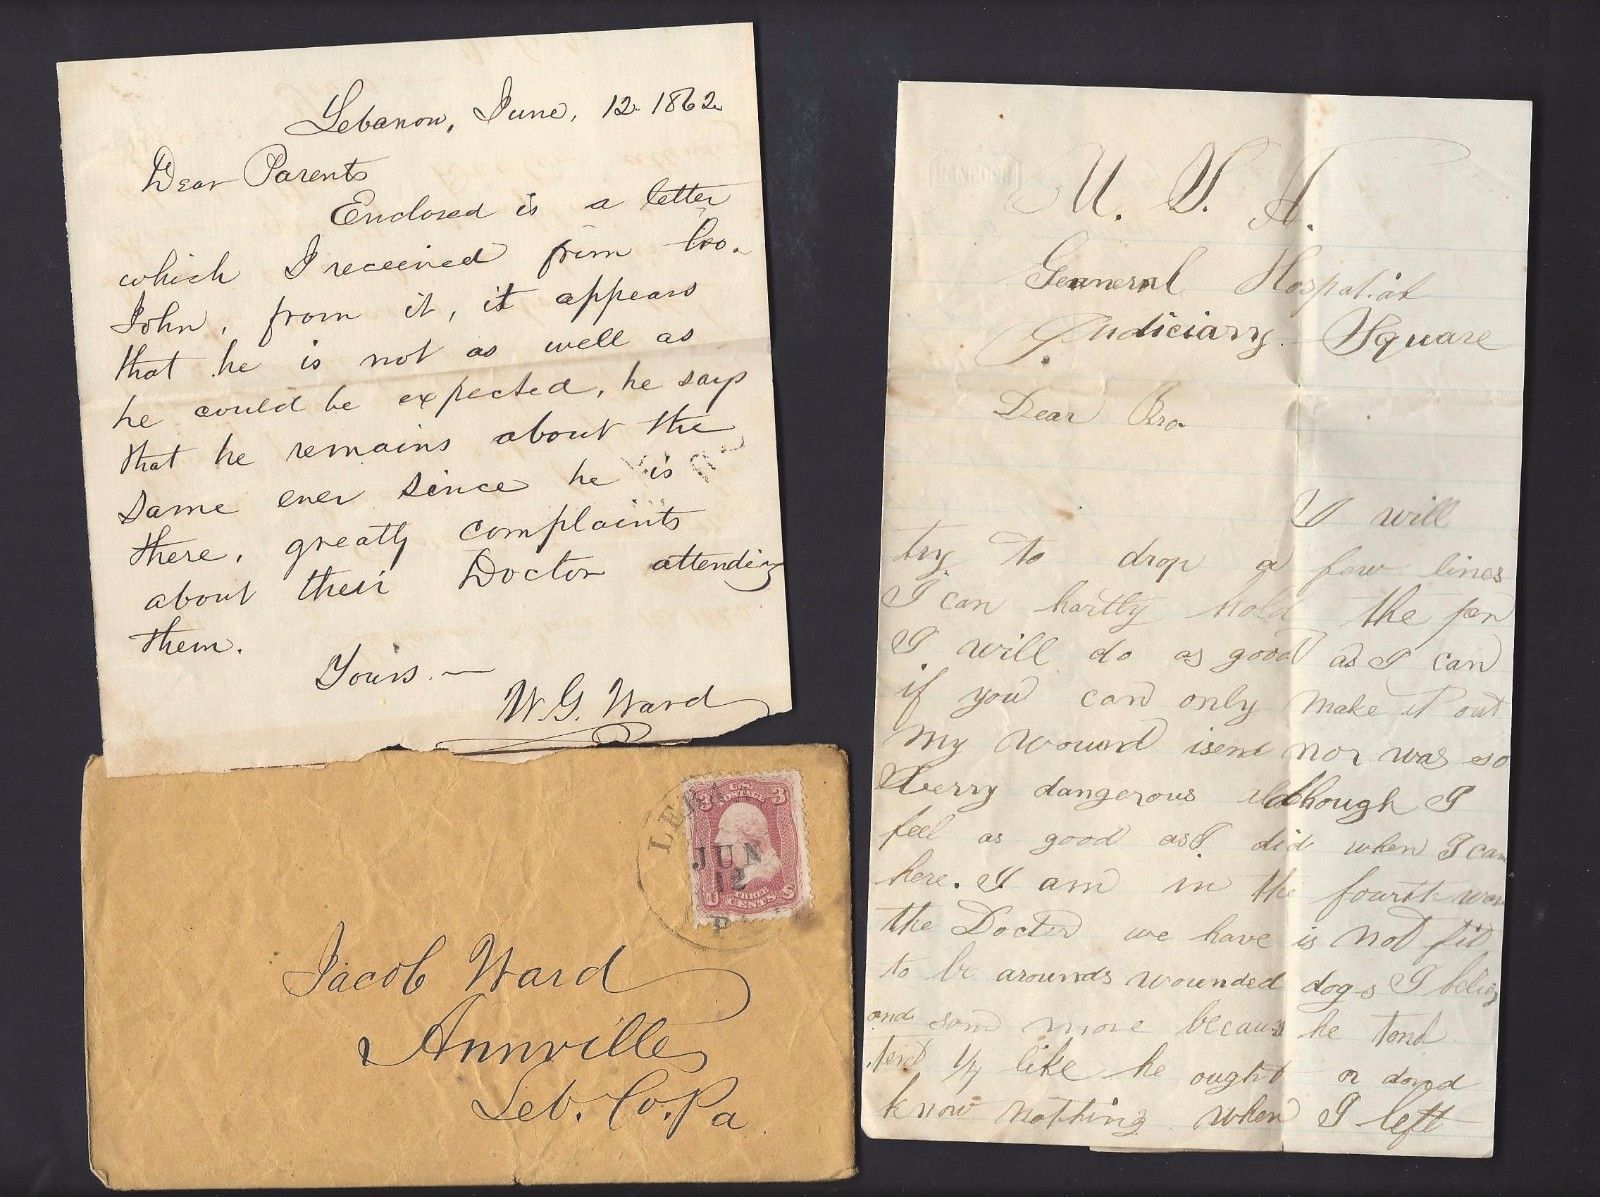 Lebanon, June, 12. 1862
Dear Parents
Enclosed is a letter
which I received from bro.
John, from it, it appears
that he is not as well as
he could be expected, he says
that he remains about the
same ever since he is
there, greatly complaints
about their Doctor attending
them.
Yours. —
W. G. Ward
LEBA
JUN
12
PA
U.S. POSTAGE
3 3
THREE
CENTS
U S
Jacob Ward
Annville
Leb. Co. Pa
U. S. A.
General Hospatial
Judiciary Square
Dear Bro.
I will
try to drop a few lines
I can hartly hold the pen
I will do as good as I can
if you can only make it out
My wound isent nor was so
verry dangerous although I
feel as good as I did when I came
here. I am in the fourth ward
the Docter we have is not fit
to be arounds wounded dogs I
and som more because he
1/4 like he ought or
know nothing when I left